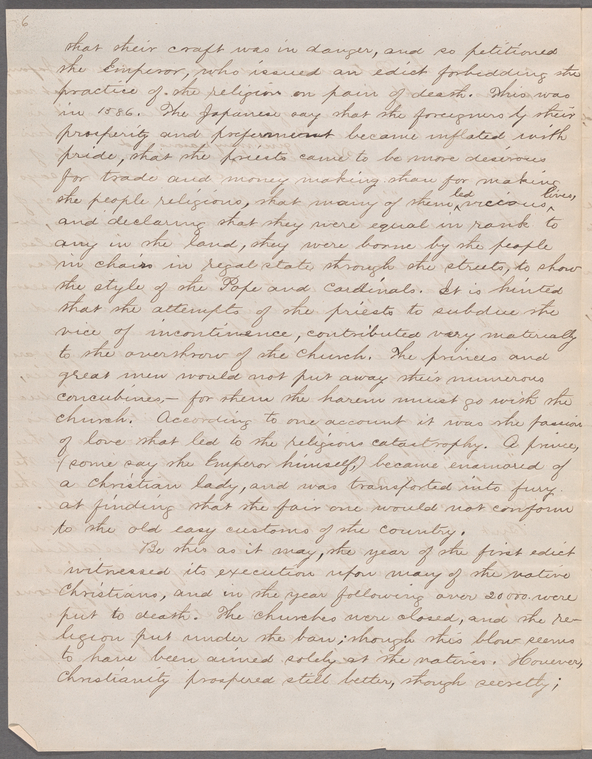 6
that their craft was in danger, and so petitioned
the Emperor, who issued an edict forbidding the
practice of the religion on pain of death. This was
in 1586. The Japanese say that the foreigners by their
prosperity and preferment became inflated with
pride, that the priests came to be more desirous
for trade and money making than for making
the people religious, that many of them led vicious lives,
and declaring that they were equal in rank to
any in the land, they were borne by the people
in chairs in regal state through the streets, to show
the style of the Pope and Cardinals. It is hinted
that the attempts of the priests to subdue the
vice of incontinence, contributed very materially
to the overthrow of the Church. The princes and
great men would not put away their numerous
concubines,— for them the harem must go with the
church. According to one account it was the passion
of love that led to the religious catastrophy. A prince,
(some say the Emperor himself,) became enamored of
a Christian lady, and was transported into fury
at finding that the fair one would not conform
to the old easy customs of the country.
Be this as it may, the year of the first edict
witnessed its execution upon many of the native
Christians, and in the year following over 20000 were
put to death. The churches were closed, and the re-
ligion put under the ban; though this blow seems
to have been aimed solely at the natives. However,
Christianity prospered still better, though secretly;